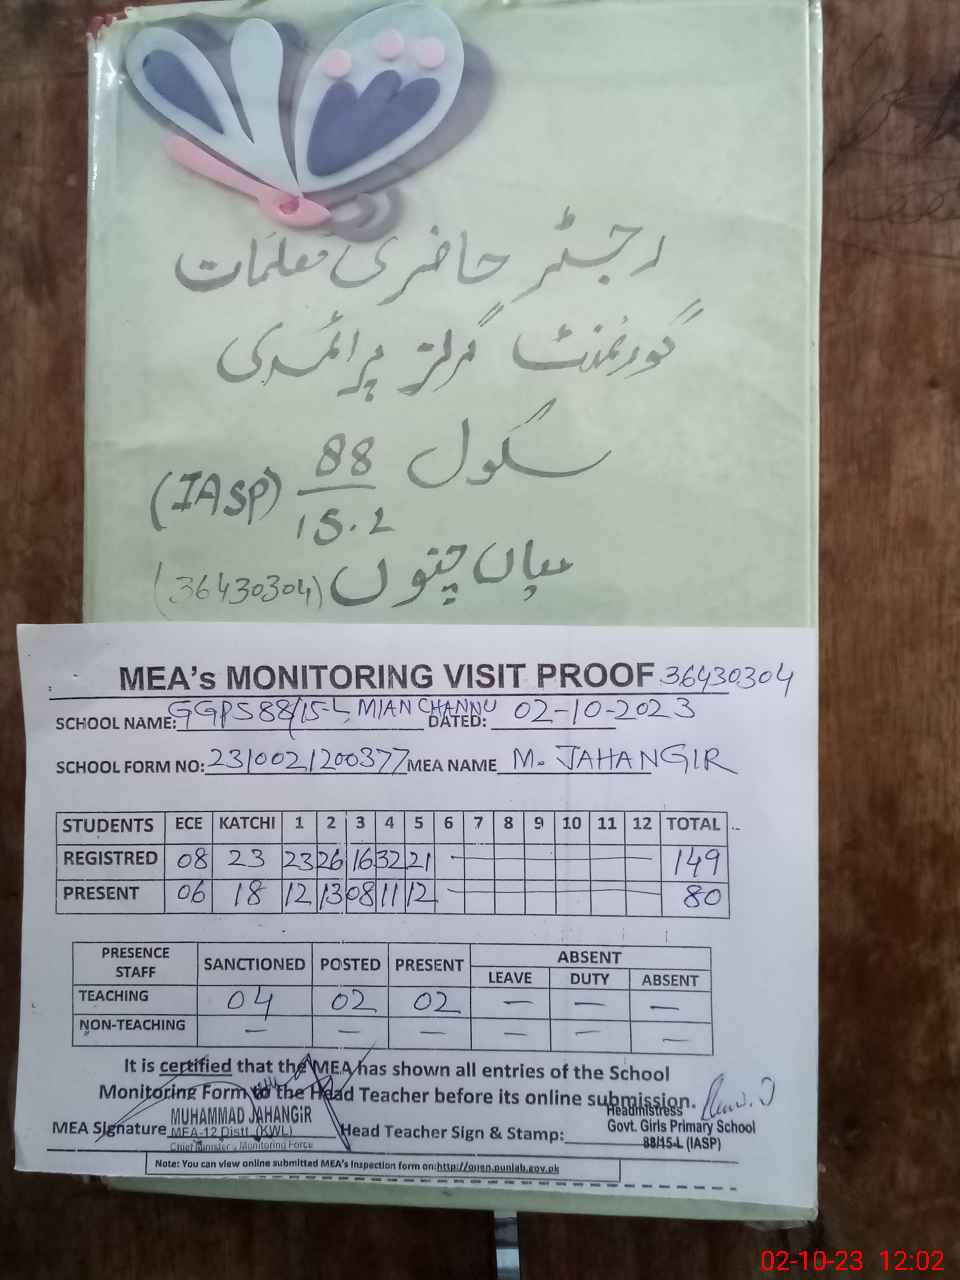 رجسٹر حاضری معلمات
گورنمنٹ گرلز پرائمری
سکول 88/15.L (IASP)
میاں چنوں (36430304)
MEA's MONITORING VISIT PROOF 36430304
SCHOOL NAME: GGPS 88/15-L, MIAN CHANNU DATED: 02-10-2023
SCHOOL FORM NO: 2310021200377 MEA NAME M. JAHANGIR
STUDENTS ECE KATCHI 1 2 3 4 5 6 7 8 9 10 11 12 TOTAL
REGISTRED 08 23 23 26 16 32 21 149
PRESENT 06 18 12 13 08 11 12 80
PRESENCE STAFF SANCTIONED POSTED PRESENT ABSENT
LEAVE DUTY ABSENT
TEACHING 04 02 02 — — —
NON-TEACHING — — — — — —
It is certified that the MEA has shown all entries of the School
Monitoring Form to the Head Teacher before its online submission.
MEA Signature MUHAMMAD JAHANGIR
MEA-12 Distt. (KWL)
Chief Minister's Monitoring Force
Head Teacher Sign & Stamp:
Headmistress
Govt. Girls Primary School
88/15-L (IASP)
Note: You can view online submitted MEA's Inspection form on:http://open.punjab.gov.pk
02-10-23 12:02